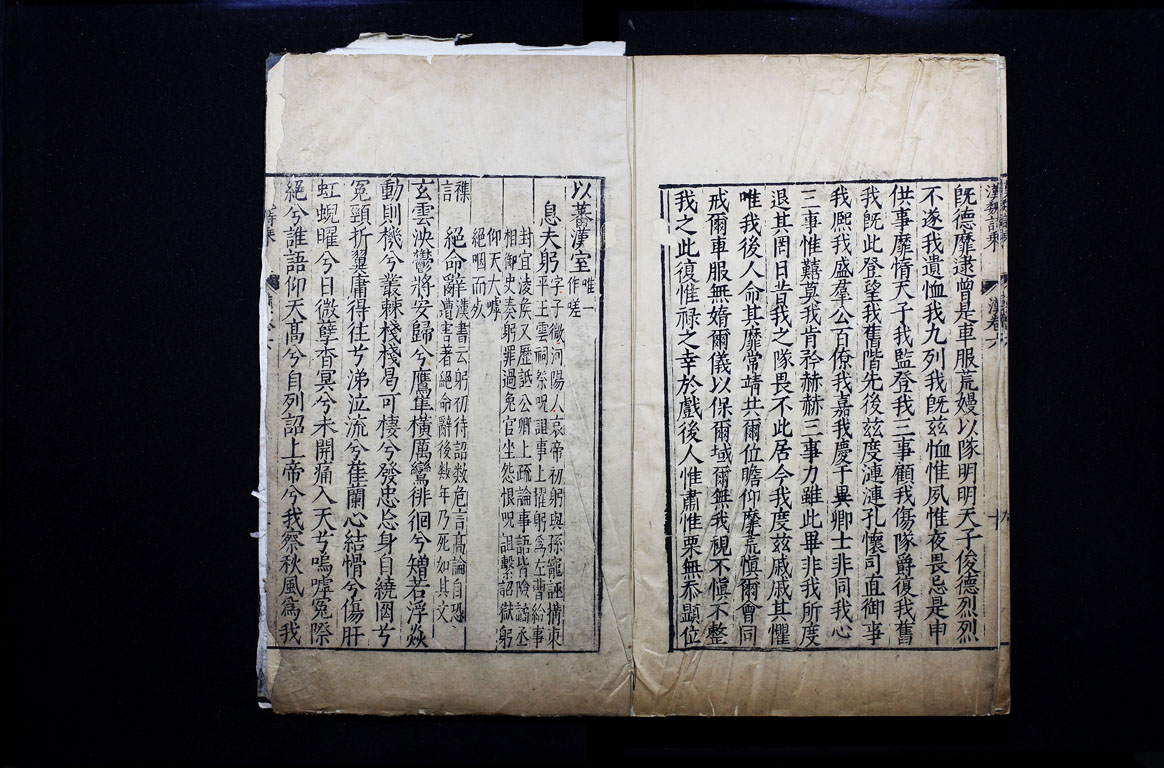 既德靡逮曾是車服荒嫚以隊明明天子俊德烈烈
不遂我遺恤我九列我旣兹恤惟夙惟夜畏忌是申
供事靡惰天子我監登我三事顧我傷隊爵復我舊
我旣此登望我舊階先後兹度漣漣孔懷司直御事
我熈我盛羣公百僚我嘉我慶于異卿士非同我心
三事惟囏莫我肯矜赫赫三事力雖此畢非我所度
退其罔日昔我之隊畏不此居今我度兹戚戚其懼
唯我後人命其靡常靖共爾位瞻仰靡荒愼爾會同
戒爾車服無媠爾儀以保爾域爾無我視不愼不整
我之此復惟禄之幸於戲後人惟肅惟栗無忝顯位
以蕃漢室唯一作嗟
息夫躬字子微河陽人哀帝初躬與孫寵誣搆東
平王雲祠祭呪詛事上擢躬爲左曹給事
封宜淩矦又歷詆公卿上疏論事語皆險譎丞
相御史奏躬罪過免官坐怨恨呪詛繫詔獄躬
仰天大嘑
絕咽而死
絕命辭漢書云躬初待詔数危言髙論自恐
遭害著絕命辭後数年乃死如其文
玄雲泱鬱將安歸兮鷹隼橫厲鸞徘徊兮矰若浮猋
動則機兮叢棘棧棧曷可棲兮發忠忘身自繞罔兮
寃頸折翼庸得往兮涕泣流兮萑蘭心結愲兮傷肝
虹蜺曜兮日微孽杳冥兮未開痛入天兮嗚嘑寃際
絕兮誰語仰天髙兮自列詔上帝兮我察秋風爲我